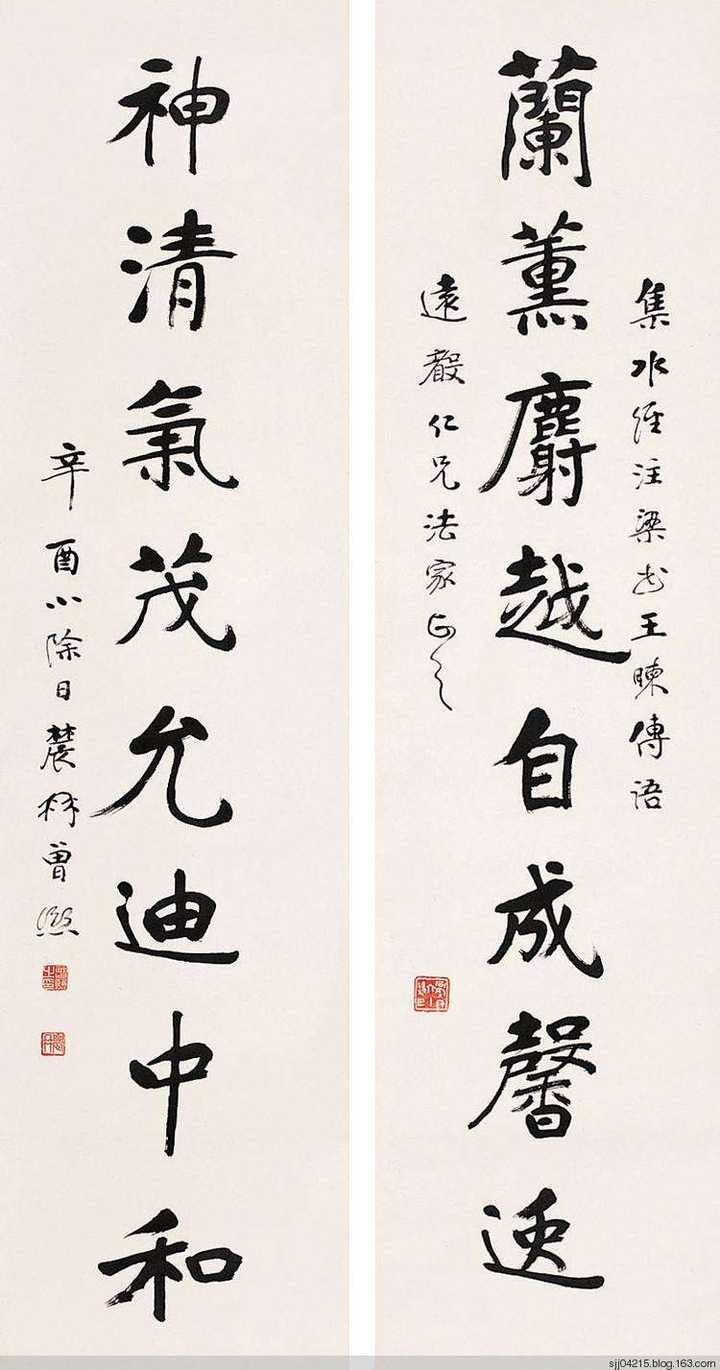 集水經注梁書王暕傳語
蘭薰麝越自成馨逸
遠仁兄法家正之
神清氣茂允迪中和
辛酉小除日農髯曾熙
sjj04215.blog.163.com